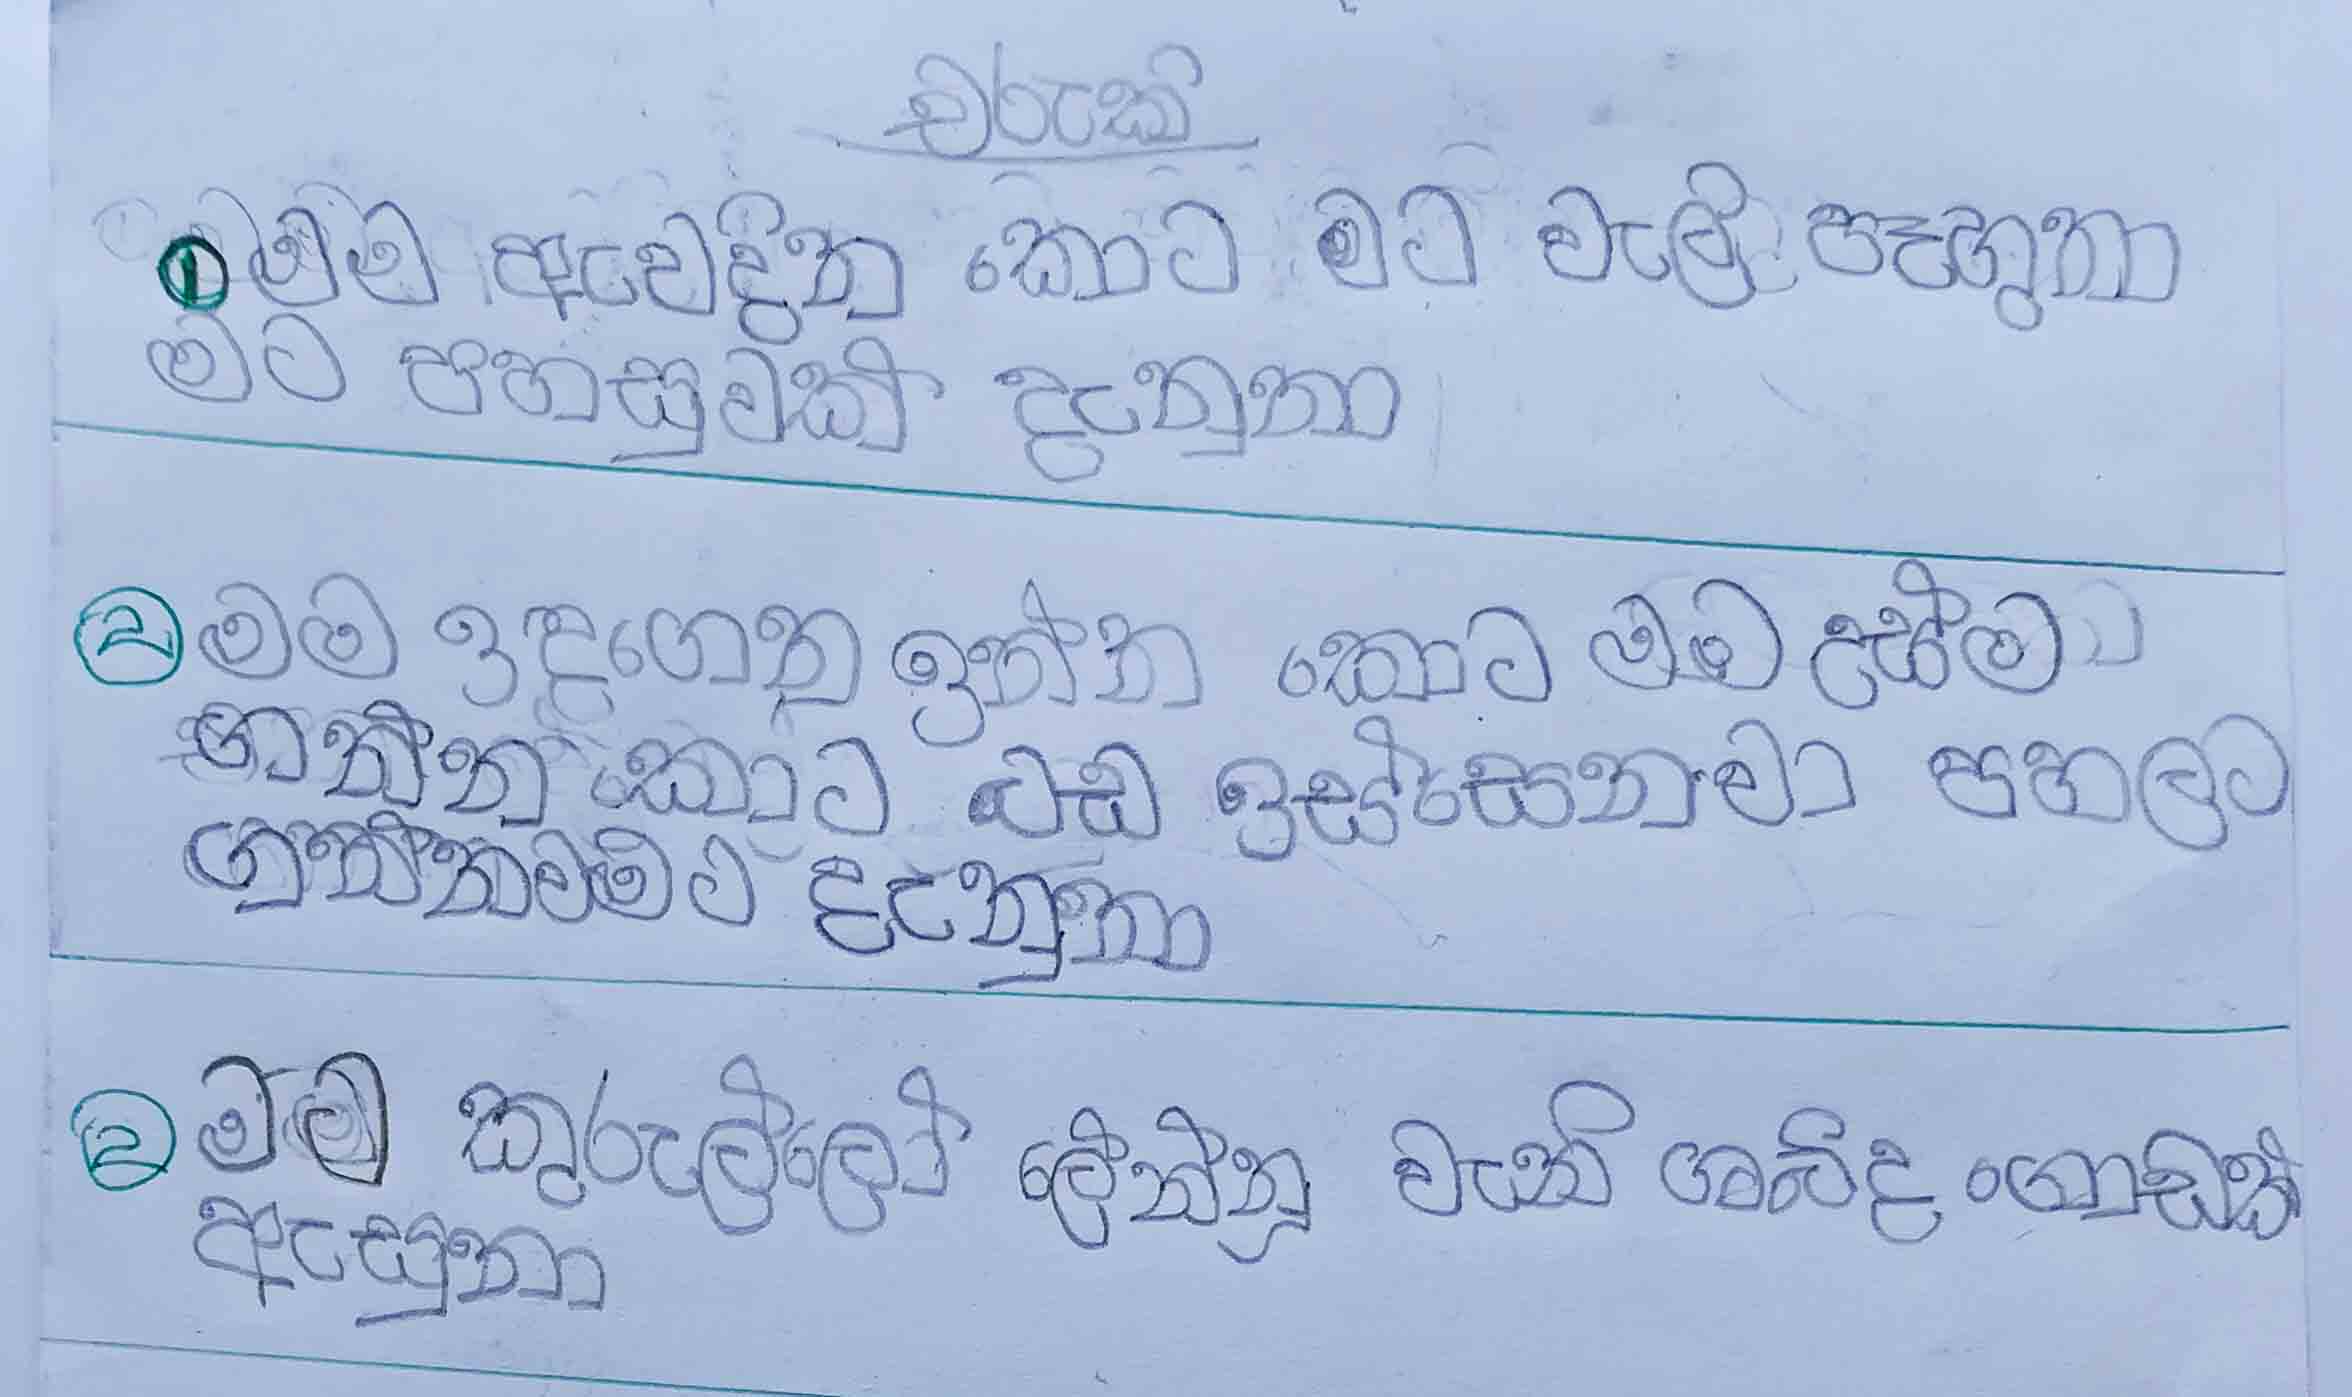 චරුකි
① මම ඇවදින කොට මට වැලි පෑගුනා
මට පහසුවක් දැනුනා
② මම ඉදගෙන ඉන්න කොට මම උස්ම
ගන්න කොට බඩ ඉස්සෙනවා පහලට
ගන්නවමට දැනුනා
② මම කුරුල්ලෝ ලේන්නු වැනි ශබ්ද ගොඩක්
ඇසුනා